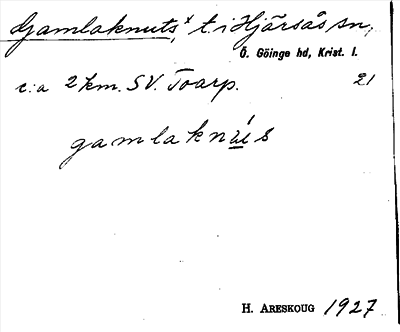 Gamlaknuts,ˣ t. i Hjärsås sn,
Ö. Göinge hd, Krist. l.
c:a 2 km. SV. Toarp. 21
gamlaknu̲s
H. Areskoug 1927